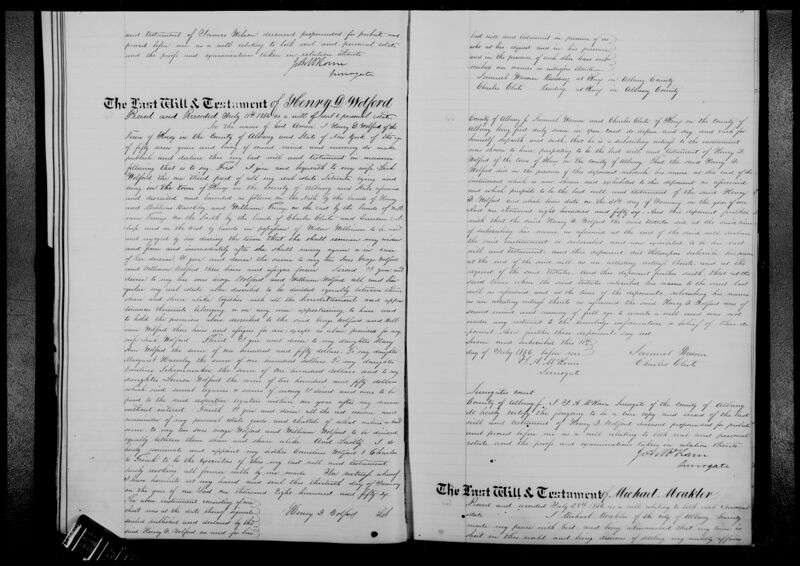 and testament of James Wilson deceased propounded for probate and
proved before me as a will relating to both real and personal estate
and the proofs and examinations taken in relation thereto
Surrogate
The Last Will & Testament of Henry D Wolford
Proved and Recorded July 11th 1856 as a will of real & personal estate
In the name of God Amen I Henry D Wolford of the
Town of Knox in the County of Albany and State of New York of the age
of fifty seven years and being of sound mind and memory do make
publish and declare this my last will and testament in manner
following that is to say First I give and bequeath to my wife
Wolford the one third part of all my real estate Situate lying and
being in the town of Knox in the County of Albany and State aforesaid
and described and bounded as follows on the North by the lands of
and William on the East by the lands of
on the South by the lands of Charles Clute and
and on the West by lands in possession of Widow Williams to be used
and enjoyed by her during the term that she shall remain my widow
and from and immediately after she shall marry again or in case
of her decease I give and devise the same to my two sons George Wolford
and William Wolford their heirs and assigns forever Second I give and
devise to my two sons George Wolford and William Wolford all and
my real estate above described to be divided equally between them
share and share alike Together with all the hereditaments and appur
tenances thereunto belonging or in any wise appertaining to have and
to hold the premises above described to the said George Wolford and Will
iam Wolford their heirs and assigns for ever, except as above provided for my
wife Wolford Third I give and devise to my daughter Mary
Ann Wolford the sum of one hundred and fifty dollars To my daughter
Margaret the sum of one hundred dollars To my daughter
Emeline Schoonmaker the sum of one hundred dollars and to my
daughter Wolford the sum of one hundred and fifty dollars
which said several legacies or sums of money I direct and order to be
paid to the said respective legatees within one year after my decease
without interest Fourth I give and devise all the rest residue and
remainder of my personal estate goods and chattels of what nature or kind
soever to my two sons George Wolford and William Wolford to be divided
equally between them share and share alike And Lastly I do
hereby nominate and appoint my brother Cornelius Wolford & Charles
to be the executors of this my last will and testament
hereby revoking all former wills by me made In witness whereof
I have hereunto set my hand and seal this thirtieth day of January
in the year of our Lord one thousand Eight hundred and fifty six
The above instrument consisting of one
sheet was at the date thereof signed
sealed published and declared by the
said Henry D Wolford as and for his
Henry D Wolford LS
last will and testament in presence of us
who at his request and in his presence
and in the presence of each other have sub
scribed our names as witnesses thereto
Samuel Warner Residing at Knox in Albany County
Charles Clute Residing at Knox in Albany County
County of Albany ss Samuel Warner and Charles Clute of Knox in the county of
Albany being first duly sworn in open court do depose and say and each for
himself deposeth and saith that he is a subscribing witness to the instrument
now shown to him purporting to be the last will and testament of Henry D
Wolford of the town of Knox in the county of Albany That the said Henry D
Wolford did in the presence of this deponent subscribe his name at the end of the
instrument which is now shown and exhibited to this deponent as aforesaid
and which purports to be the last will and testament of the said Henry
D Wolford and which bears date on the 30th day of January in the year of our
Lord one thousand eight hundred and fifty six And this deponent further
saith that the said Henry D Wolford the said testator did at the said time
of subscribing his name as aforesaid at the end of the said will declare
the said instrument so subscribed and now exhibited to be his last
will and testament and this deponent did thereupon subscribe his name
at the end of the said will as an attesting witness thereto and at the
request of the said testator And this deponent further saith that at the
said time when the said testator subscribed his name to the said last
will as aforesaid and at the time of the deponents subscribing his name
as an attesting witness thereto as aforesaid the said Henry D Wolford was of
sound mind and memory of full age to execute a will and was not
under any restraint to the knowledge information or belief of this de
ponent And further these deponents say not
Sworn and subscribed this 11th
day of July 1856 before me
Surrogate
Samuel Warner
Charles Clute
Surrogates court
County of Albany ss I Surrogate of the county of Albany
do hereby certify the foregoing to be a true copy and record of the last
will and testament of Henry D Wolford deceased propounded for probate
and proved before me as a will relating to both real and personal
estate and the proofs and examinations taken in relation thereto
Surrogate
The Last Will & Testament of Michael Moakler
Proved and recorded July 1856 as a will relating to both real & personal
estate
I Michael Moakler of the city of Albany having
made my peace with God, and being
short in this world and being desirous of settling my worldly affairs